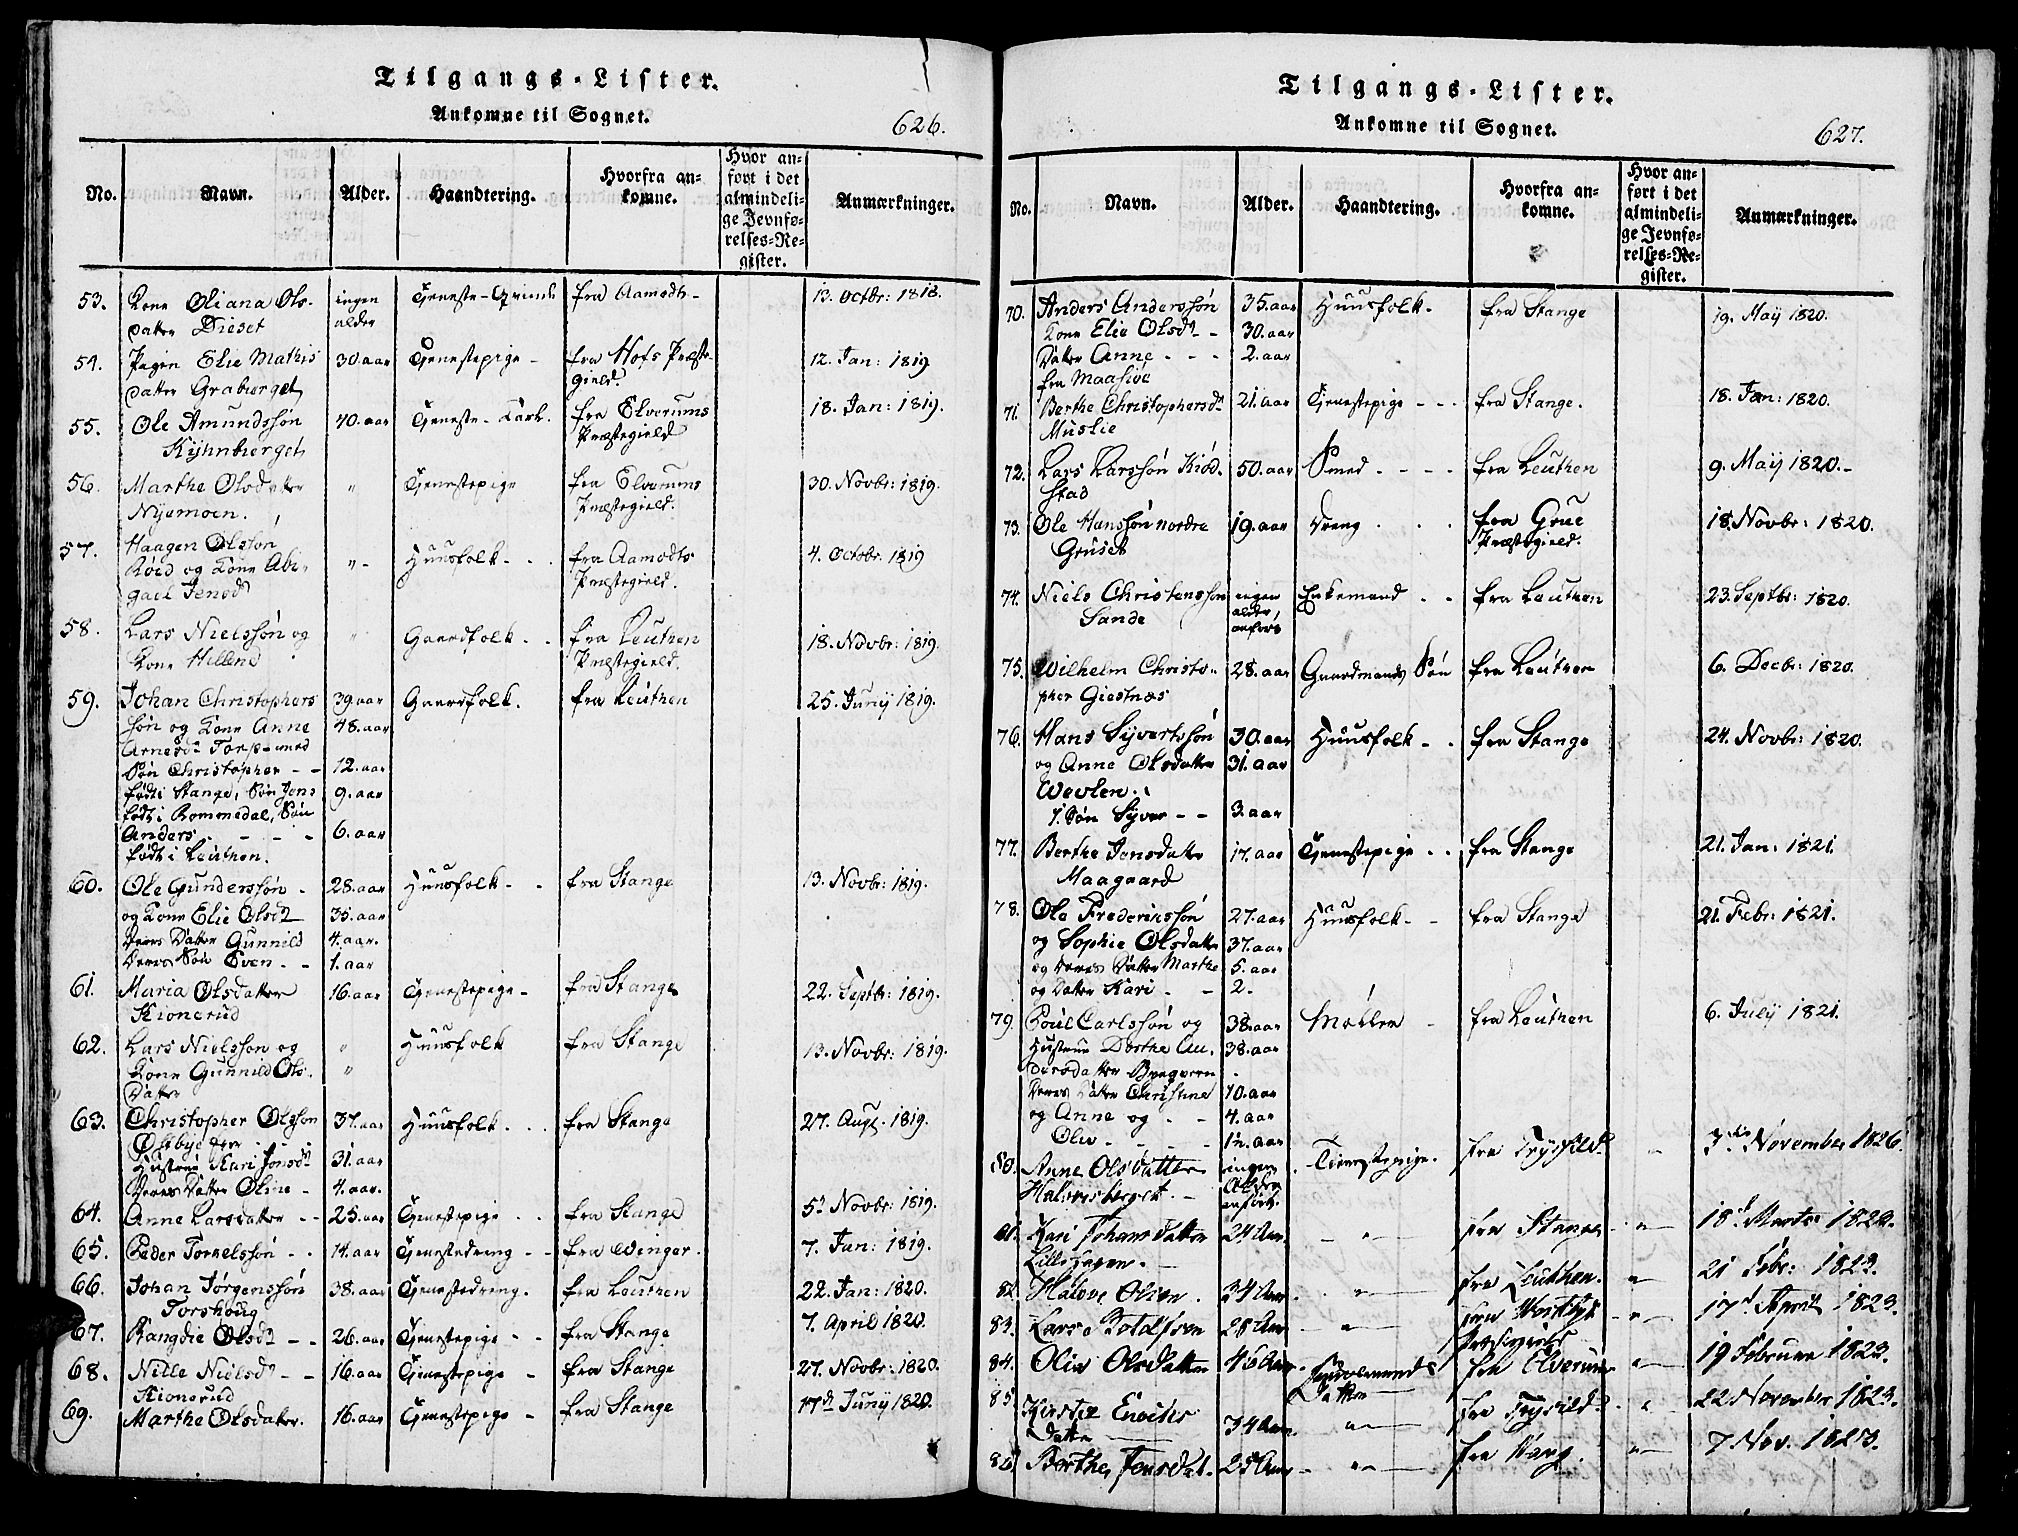 Tilgangs-Lister.
Ankomne til Sognet.
626.
No. Navn. Alder. Haandtering. Hvorfra ankomne. Hvor anført i det almindelige Jevnførelses-Register. Anmærkninger.
53. Kone Oliana Ols- ingen Tjeneste-Qvinde fra Aamodts- 13. Octbr: 1818.
datter Dieset alder
54. Pigen Elie Mathis 30. aar Tjenestepige - fra Hofs Præste- 12. Jan: 1819
datter Graberget gield.
55. Ole Amundssøn 40. aar Tjeneste-Karl. fra Elverums 18. Jan: 1819.
Kyhnberget Præstegield
56. Marthe Olsdatter " Tjenestepige fra Elverums 30. Novbr: 1819.
Nyemoen. Præstegield.
57. Haagen Olsson "- Huusfolk - . . fra Aamodts 4. Octobr: 1819
Roed og Kone Abi- Præstegield.
gael Jensd
58. Lars Nielssøn og " Gaardfolk - . fra Leuthen 18. Novbr: 1819.
Kone Hellene Præstegield.
59. Johan Christophers 39. aar Gaardfolk. fra Leuthen 25. Juny 1819.
søn og Kone Anne 48. aar
Arnesd: Torp - med
Søn Christopher - - 12. aar
født i Stange, Søn Jens 9. aar
født i Rommedal, Søn
Anders - - - - 6. aar
født i Leuthen.
60. Ole Gunderssøn - 28. aar Huusfolk - . fra Stange 13. Novbr: 1819.
og Kone Elie Olsd 35. aar
Deres Datter Gunnild 4. aar.
Deres Søn Even - - 1. aar
61. Maria Olsdatter 16. aar Tjenestepige - fra Stange 22. Septbr: 1819.
Kionerud
62. Lars Nielsson og " Huusfolk fra Stange 13. Novbr: 1819.
Kone Gunnild Ols- "
Datter
63. Christopher Olsson 37. aar Huusfolk . . . fra Stange 27. Aug: 1819.
Olsbye
Hustrue Kari Jonsd 31. aar
Deres Datter Oline - 4. aar.
64. Anne Larsdatter - - 25. aar Tjenestepige . . fra Stange 5. Novbr: 1819.
65. Peder Torkelssøn - . 14. aar Tjenestedreng - - fra Winger. 7. Jan: 1819.
66. Johan Jørgenssøn 38. aar Tjenestedreng. fra Leuthen 22. Jan: 1820.
Torshoug
67. Rangdie Olsd - - 26. aar Tjenestepige - - fra Stange 7. April 1820.
68. Nille Nielsd - - 16. aar Tjenestepige - fra Stange 27. Novbr: 1820.
Kionerud
69. Marthe Olsdatter. 16. aar Tjenestepige - fra Stange 17d Juny 1820.
Tilgangs-Lister.
Ankomne til Sognet.
627.
No. Navn. Alder. Haandtering. Hvorfra ankomne. Hvor anført i det almindelige Jevnførelses-Register. Anmærkninger.
70. Anders Anderssøn 35. aar Huusfolk. fra Stange 19. May 1820.
Kone Elie Olsd - 30. aar
Datter Anne - - - 2. aar
fra Maasiøe
71. Berthe Christophersd 21. aar Tjenestepige - - - fra Stange. 18. Jan: 1820.
Muslie
72. Lars Larssøn Kiød- 50. aar Smed - - - - fra Leuthen 9. May 1820.-
stad
73. Ole Hanssøn nordre 19. aar Dreng . . . fra Grue 18. Novbr: 1820.
Gruset Præstegield.
74. Niels Christenssøn ingen Enkemand . . fra Leuthen 23. Septbr: 1820.
Sande alder anførs
75. Wilhelm Christo- 28. aar Gaardmands Søn fra Leuthen 6. Decbr: 1820.
pher Giestnæs
76. Hans Syvertssøn 30. aar Huusfolk - . fra Stange 24. Novbr: 1820.
og Anne Olsdatter 31. aar
Wevlen.
1. Søn Syver - - 3. aar
77. Berthe Jensdatter 17. aar Tjenestepige . . fra Stange 21. Jan: 1821.
Maagaard
78. Ole Frederikssøn 27. aar Huusfolk - - fra Stange 21. Febr: 1821.
og Sophie Olsdatter 37. aar
og deres Datter Marthe 5. aar
og Datter Kari - - 2.
79. Poul Carlssøn og 38. aar Møller - fra Leuthen 6. July 1821.
Hustrue Dorthe An- 38. aar
dersdatter
Deres Datter Christine 10. aar
og Anne og - - 4. aar
Oliv - - - - 1½. aar
80. Anne Olsdatter ingen Tienestepige. fra Trysild " 7de November 1826
Halvorsberget. - Alder anført.
81. Kari Johansdatter 24 Aar. - " - fra Stange - " - 18d Marts 1822.
Lille Hagen. -
82. Halvor Olsen. 34 Aar. " - fra Leuthen. " - 21 Febr: 1823.
83. Lars Rolfsen 28 Aar - " - fra " - 17d April 1823.
Præstegield
84. Oliv Olsdatter 46 Aar. fra Elverum " - 19 Februar 1823.
Datter
85. Kirstie Enochs- 34 Aar. " - fra Trysild " - 22 November 1823.
datter
86. Berthe Jensdat. 25 Aar - " - fra Wang. " - 7 Nov. 1823.